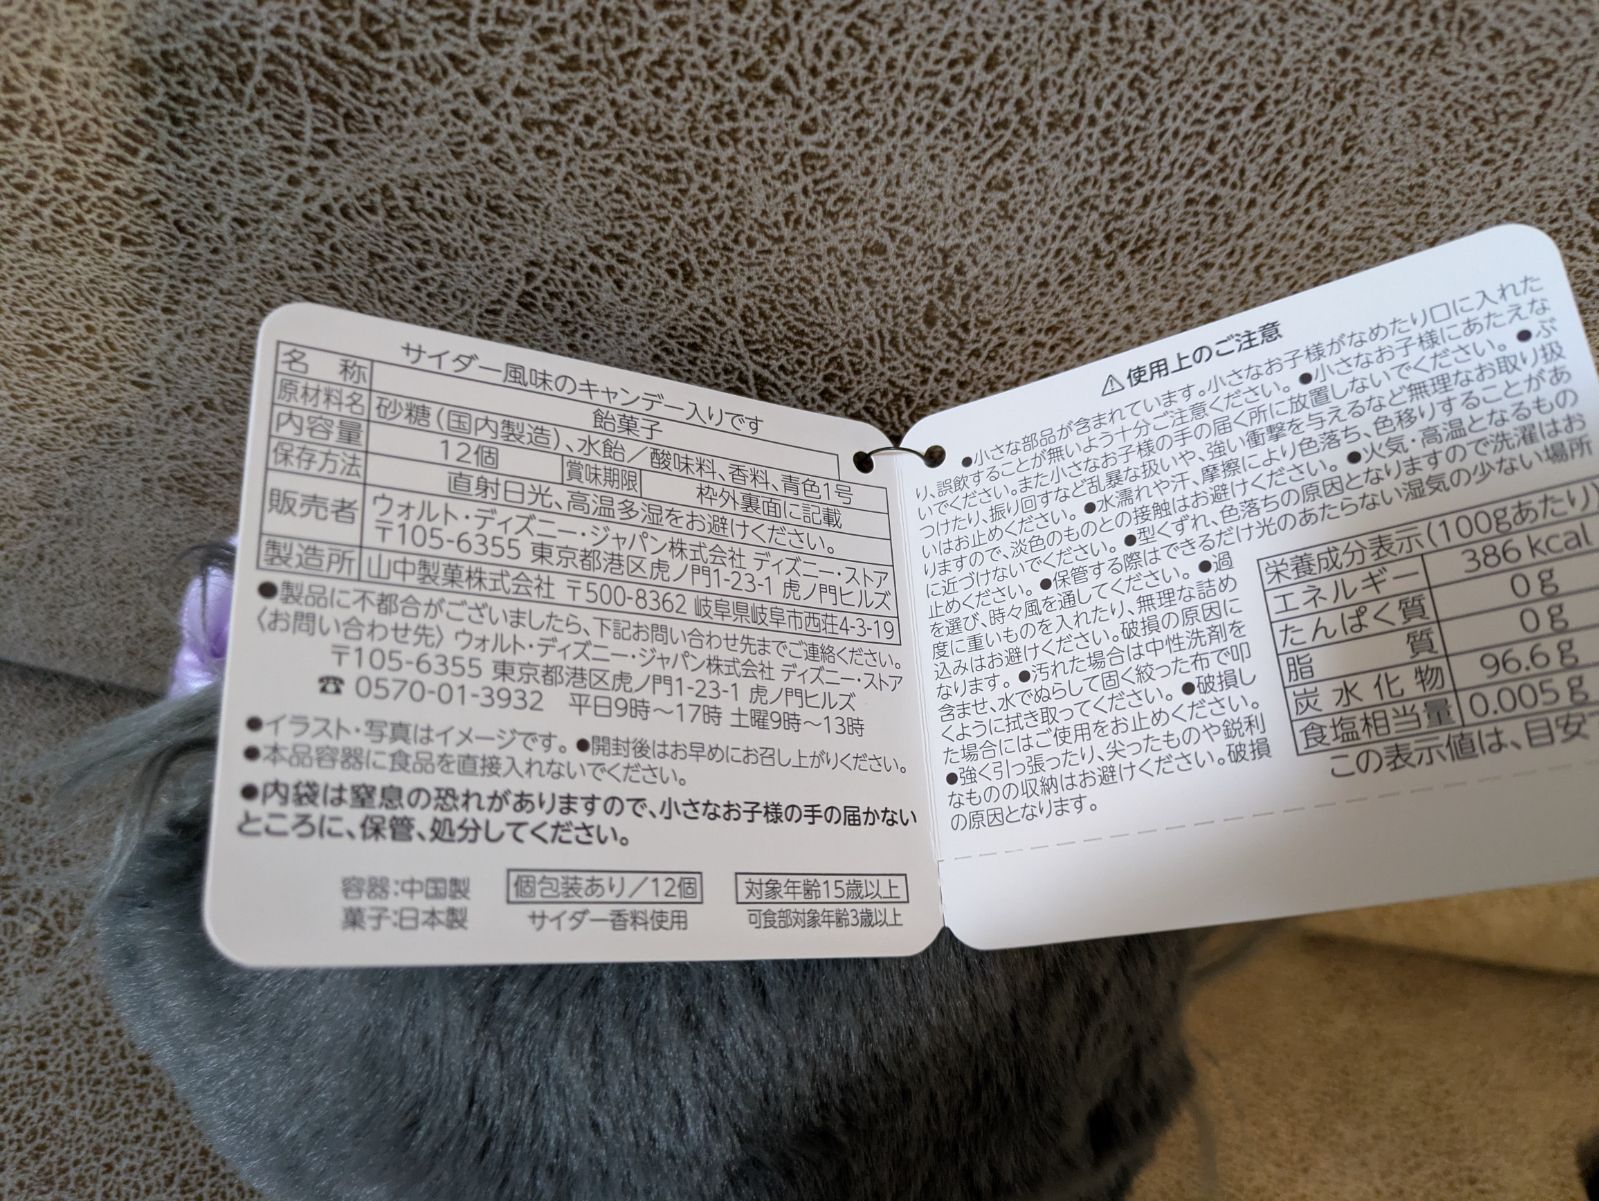 サイダー風味のキャンデー入りです
名 称 飴菓子
原材料名 砂糖(国内製造)、水飴/酸味料、香料、青色1号
内容量 12個 賞味期限 枠外裏面に記載
保存方法 直射日光、高温多湿をお避けください。
販売者 ウォルト・ディズニー・ジャパン株式会社 ディズニー・ストア
〒105-6355 東京都港区虎ノ門1-23-1 虎ノ門ヒルズ
製造所 山中製菓株式会社 〒500-8362 岐阜県岐阜市西荘4-3-19
●製品に不都合がございましたら、下記お問い合わせ先までご連絡ください。
〈お問い合わせ先〉ウォルト・ディズニー・ジャパン株式会社 ディズニー・ストア
〒105-6355 東京都港区虎ノ門1-23-1 虎ノ門ヒルズ
☎ 0570-01-3932 平日9時〜17時 土曜9時〜13時
●イラスト・写真はイメージです。●開封後はお早めにお召し上がりください。
●本品容器に食品を直接入れないでください。
●内袋は窒息の恐れがありますので、小さなお子様の手の届かない
ところに、保管、処分してください。
容器:中国製 個包装あり/12個 対象年齢15歳以上
菓子:日本製 サイダー香料使用 可食部対象年齢3歳以上
⚠使用上のご注意
●小さな部品が含まれています。小さなお子様がなめたり口に入れた
り、誤飲することが無いよう十分ご注意ください。●小さなお子様にあたえな
いでください。また小さなお子様の手の届く所に放置しないでください。●ぶ
つけたり、振り回すなど乱暴な扱いや、強い衝撃を与えるなど無理なお取り扱
いはお止めください。●水濡れや汗、摩擦により色落ち、色移りすることがあ
りますので、淡色のものとの接触はお避けください。●火気・高温となるもの
に近づけないでください。●型くずれ、色落ちの原因となりますので洗濯はお
止めください。●保管する際はできるだけ光のあたらない湿気の少ない場所
を選び、時々風を通してください。●過
度に重いものを入れたり、無理な詰め
込みはお避けください。破損の原因に
なります。●汚れた場合は中性洗剤を
含ませ、水でぬらして固く絞った布で叩
くように拭き取ってください。●破損し
た場合にはご使用をお止めください。
●強く引っ張ったり、尖ったものや鋭利
なものの収納はお避けください。破損
の原因となります。
栄養成分表示(100gあたり)
エネルギー 386kcal
たんぱく質 0g
脂 質 0g
炭水化物 96.6g
食塩相当量 0.005g
この表示値は、目安